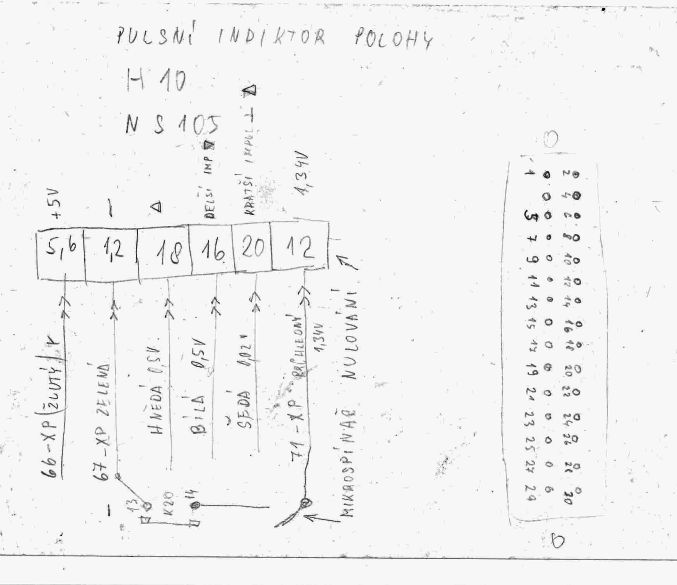 PULSNÍ INDIKTOR POLOHY
H 10
N S 105
+5V
DELŠÍ IMP
KRATŠÍ IMPUL
1,34V
5,6 1,2 18 16 20 12
66-XP ŽLUTÝ
67-XP ZELENÁ
HNĚDÁ 0,5V
BÍLÁ 0,5V
ŠEDÁ 0,02V
71-XP PRŮHLEDNÝ
1,34V
MIKROSPÍNAČ NULOVÁNÍ
13 K20 14
1 3 5 7 9 11 13 15 17 19 21 23 25 27 29
2 4 6 8 10 12 14 16 18 20 22 24 26 28 30